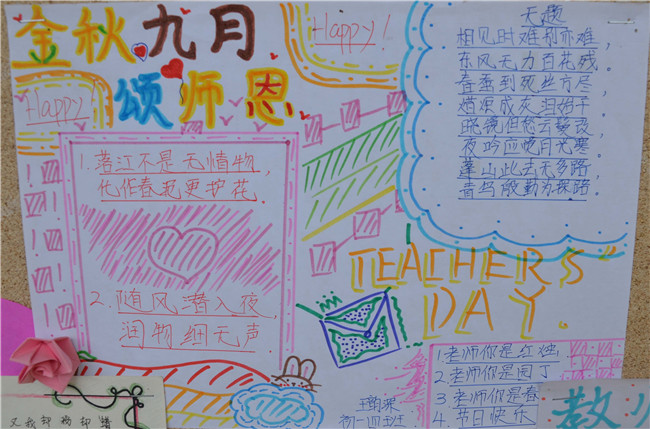 金秋九月
颂师恩
Happy!
Happy!
无题
相见时难别亦难,
东风无力百花残。
春蚕到死丝方尽,
蜡炬成灰泪始干
晓镜但愁云鬓改,
夜吟应觉月光寒。
蓬山此去无多路,
青鸟殷勤为探路.
1.落江不是无情物,
化作春泥更护花.
2. 随风潜入夜,
润物细无声.
TEACHERS"
DAY.
1老师你是红烛
2老师你是园丁
3老师你是春
4.节日快乐
初一四班
教